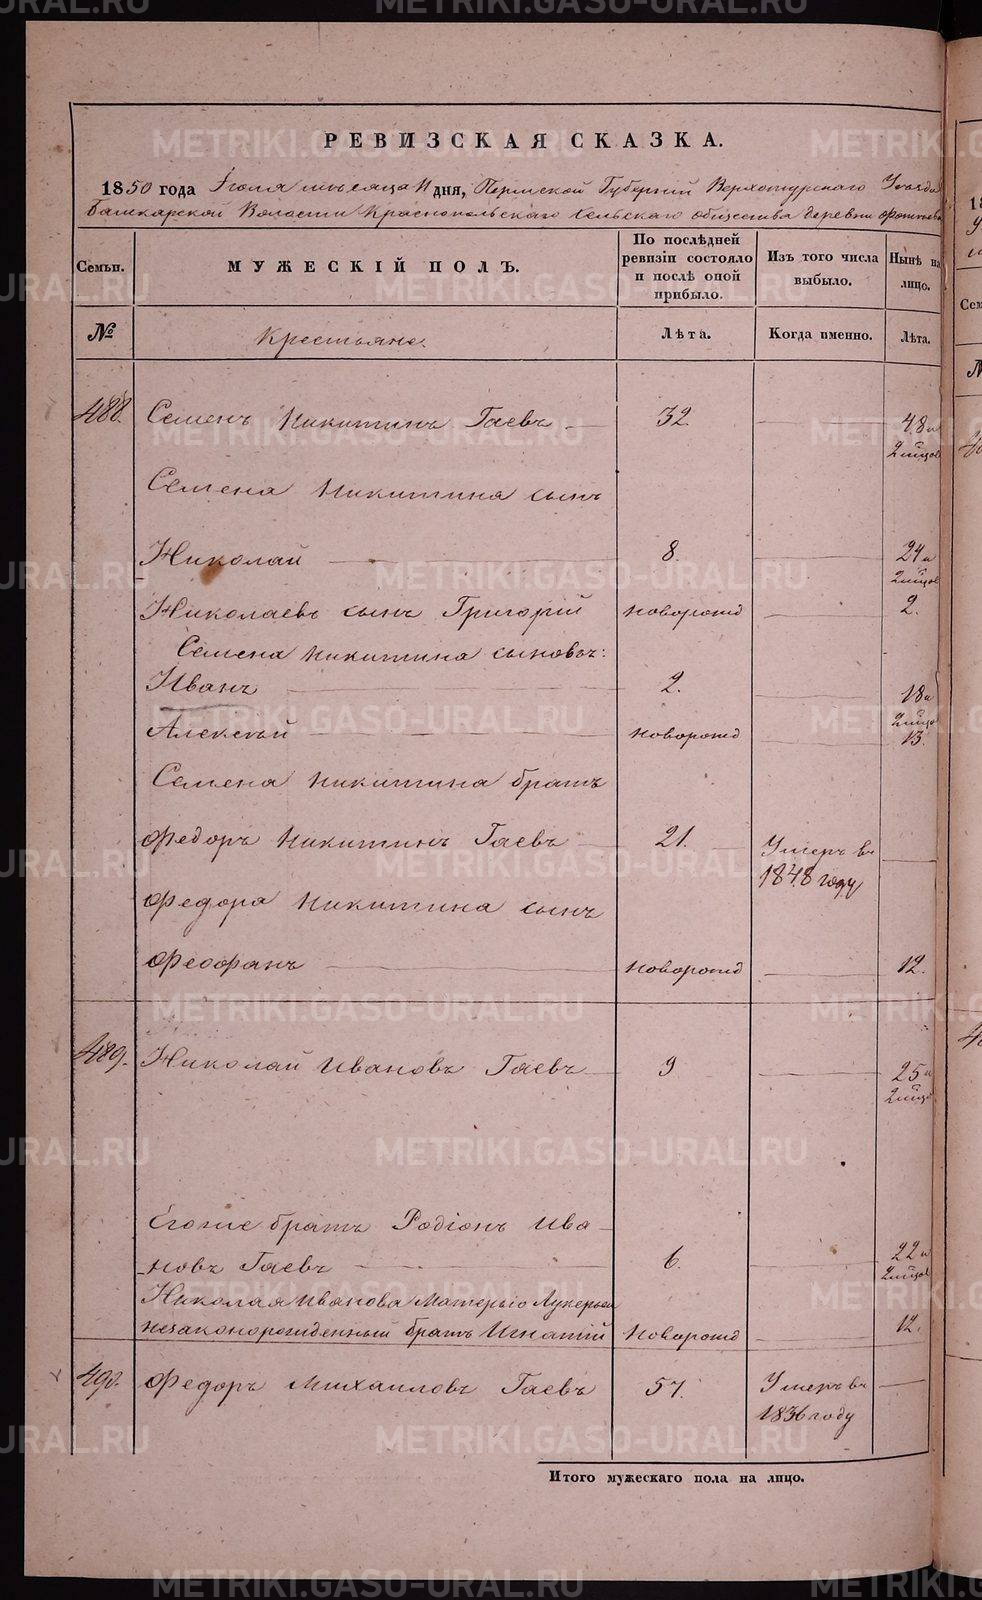 METRIKI.GASO-URAL.RU
РЕВИЗСКАЯ СКАЗКА.
1850 года Іюля мѣсяца 11 дня, Пермской Губерніи Верхотурскаго Уезда
Башкарской Волости Краснопольскаго сельскаго общества деревни
Семьи.
МУЖЕСКІЙ ПОЛЪ.
По послѣдней ревизіи состояло и послѣ оной прибыло.
Изъ того числа выбыло.
Нынѣ на лицо.
№
Крестьяне.
Лѣта.
Когда именно.
Лѣта.
488. Семенъ Никитинъ Гаевъ 32. 48 и
Семена Никитина сынъ
Николай 8. 24 и
Николаевъ сынъ Григорій новорожд 2.
Семена Никитина сыновья:
Иванъ 2. 18 и
Алексѣй новорожд 13.
Семена Никитина братъ
Федоръ Никитинъ Гаевъ 21. Умеръ въ
1848 году
Федора Никитина сынъ
Феофанъ новорожд 12.
489. Николай Ивановъ Гаевъ 9 25 и
Егоже братъ Родіонъ Ива
новъ Гаевъ 6. 22 и
Николая Иванова Матерью Лукерьей
незаконорожденный братъ Игнатій новорожд 12.
490. Федоръ Михаиловъ Гаевъ 57. Умеръ въ
1836 году
Итого мужескаго пола на лицо.